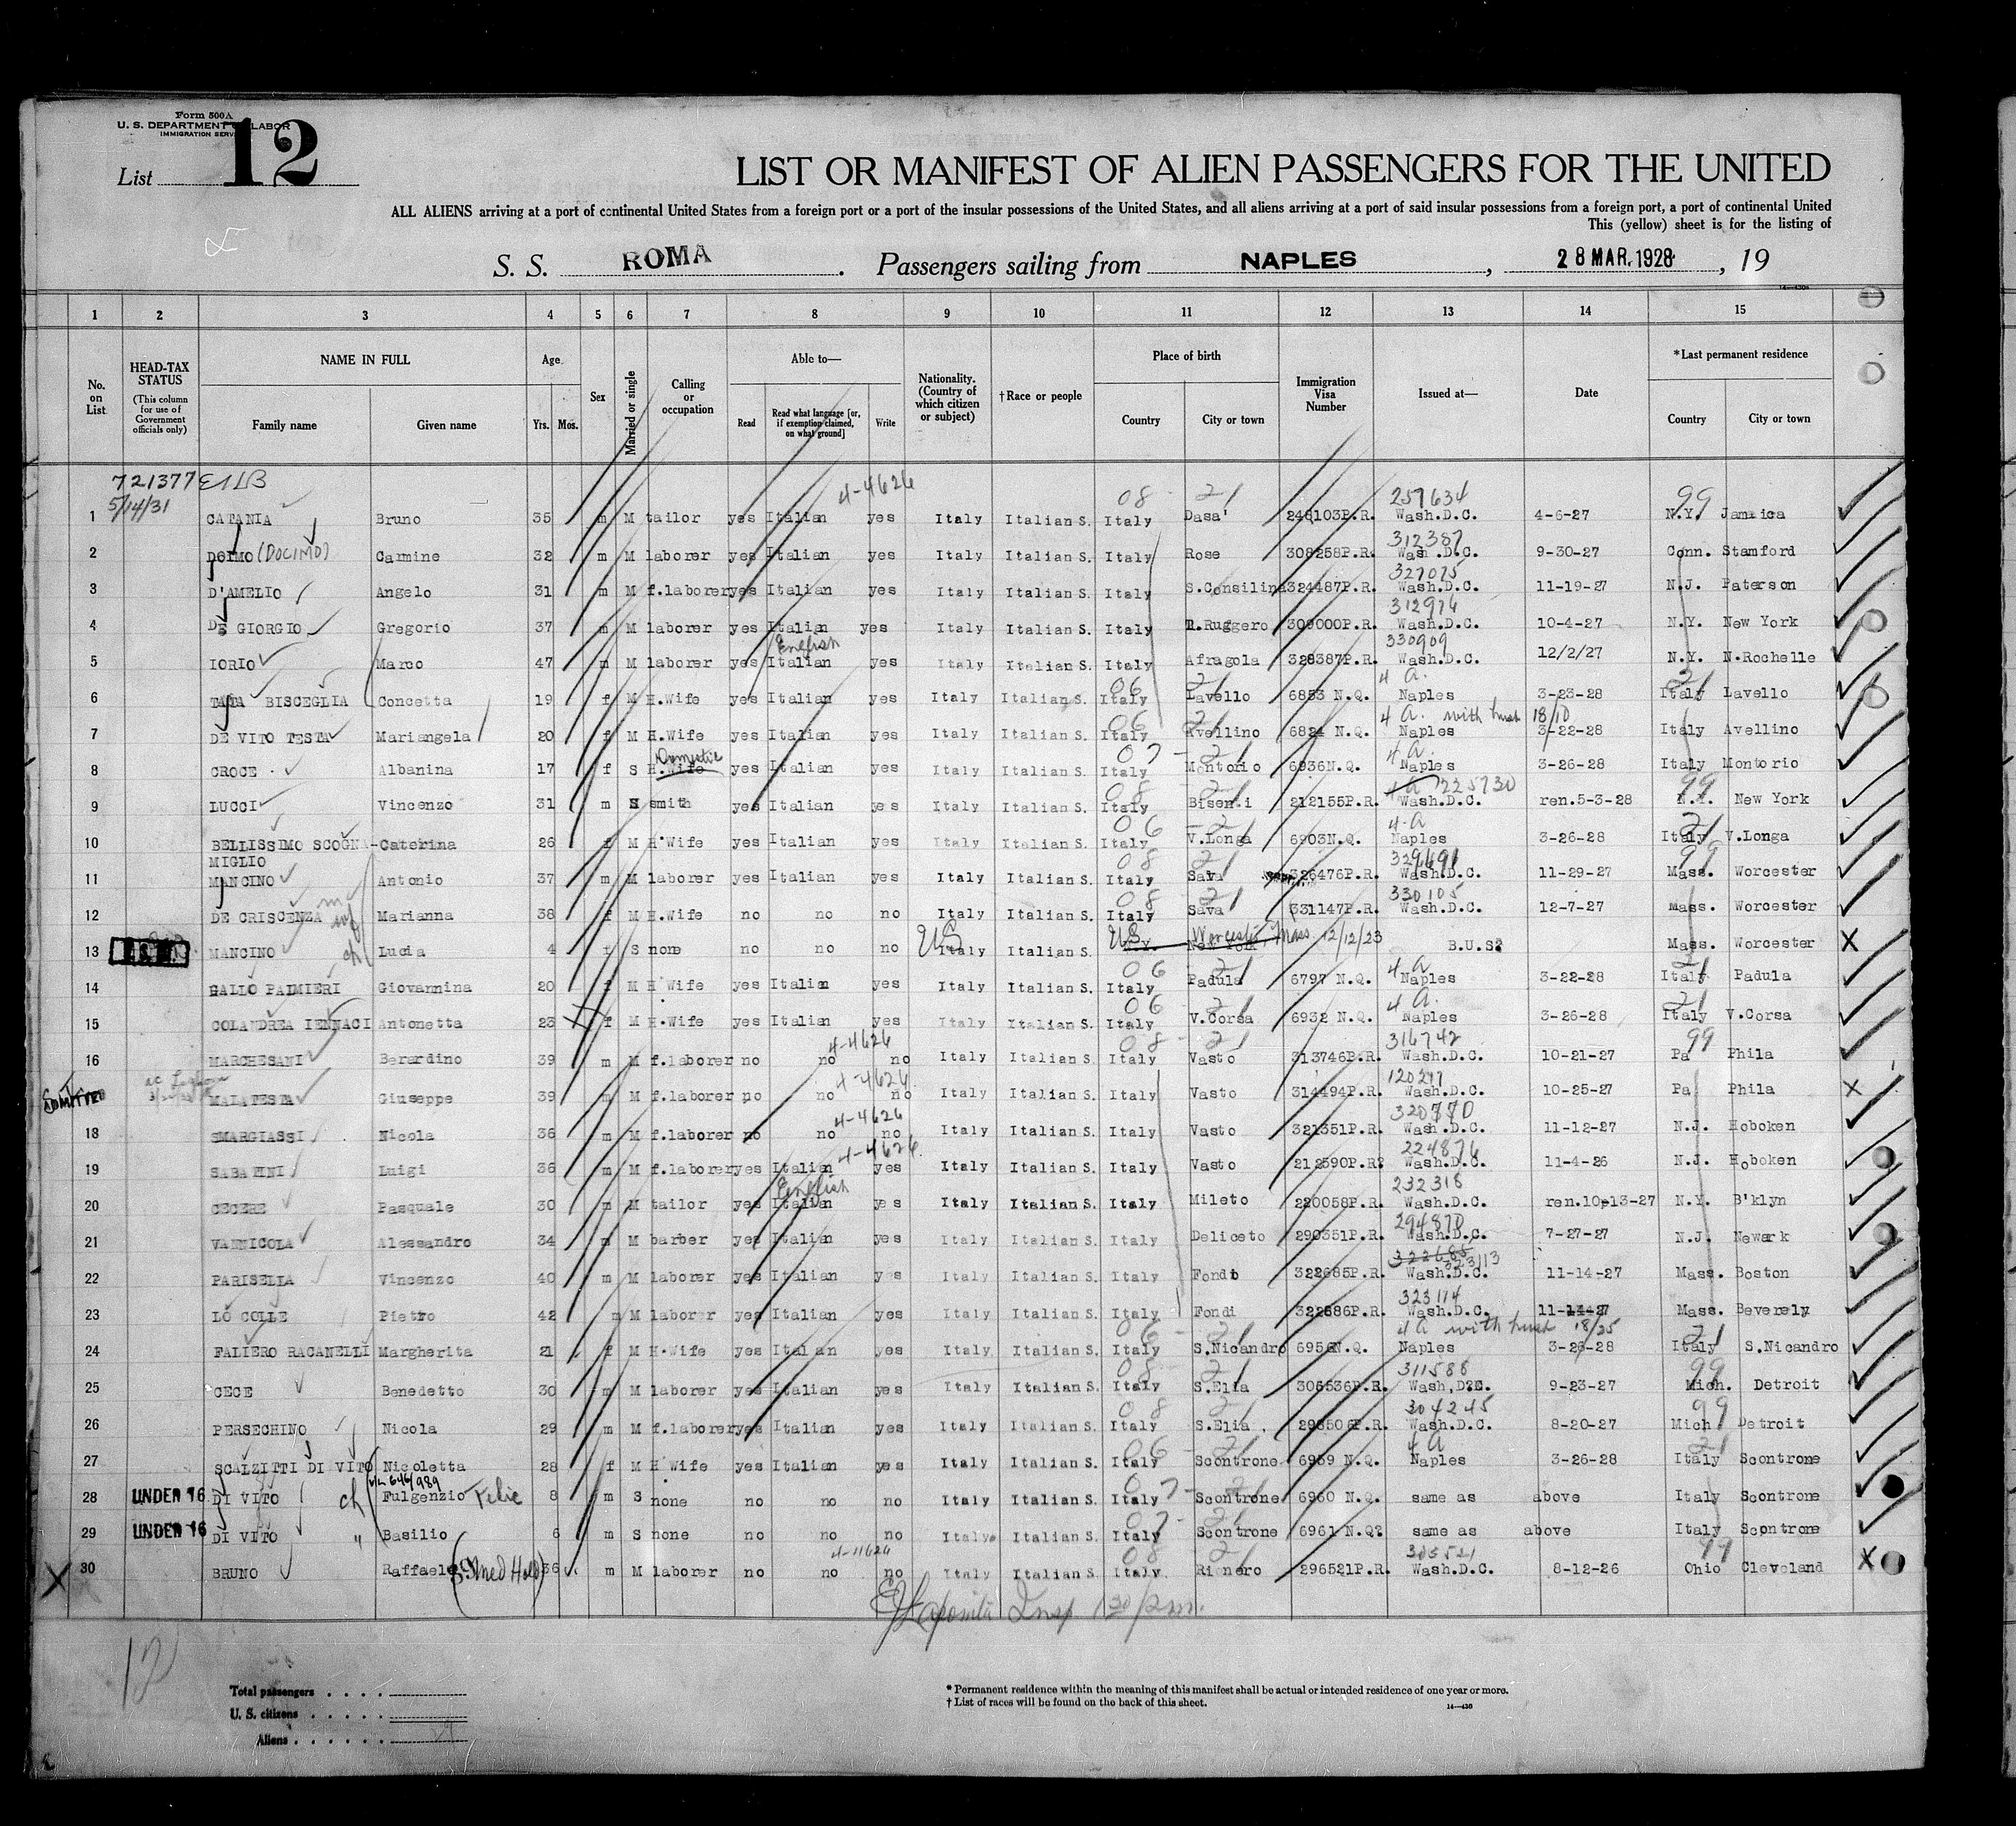 Form 500A
U. S. DEPARTMENT OF LABOR
IMMIGRATION SERVICE
List 12
LIST OR MANIFEST OF ALIEN PASSENGERS FOR THE UNITED
ALL ALIENS arriving at a port of continental United States from a foreign port or a port of the insular possessions of the United States, and all aliens arriving at a port of said insular possessions from a foreign port, a port of continental United
This (yellow) sheet is for the listing of
S. S. ROMA. Passengers sailing from NAPLES, 28 MAR. 1928, 19
1 2 3 4 5 6 7 8 9 10 11 12 13 14 15
No. on List HEAD-TAX STATUS (This column for use of Government officials only) NAME IN FULL Family name Given name Age Yrs. Mos. Sex Married or single Calling or occupation Able to— Read Read what language [or, if exemption claimed, on what ground] Write Nationality. (Country of which citizen or subject) †Race or people Place of birth Country City or town Immigration Visa Number Issued at— Date *Last permanent residence Country City or town
721377
5/14/31 4-4626 08 21 257634 99
1 CATANIA Bruno 35 m M tailor yes Italian yes Italy Italian S. Italy Dasa' 248103P.R. Wash.D.C. 4-6-27 N.Y. Jamaica
312387
2 DOIMO (DOCIMO) Carmine 32 m M laborer yes Italian yes Italy Italian S. Italy Rose 308258P.R. Wash.D.C. 9-30-27 Conn. Stamford
327075
3 D'AMELIO Angelo 31 m M f.laborer yes Italian yes Italy Italian S. Italy S.Consilina 324487P.R. Wash.D.C. 11-19-27 N.J. Paterson
312976
4 DE GIORGIO Gregorio 37 m M laborer yes Italian yes Italy Italian S. Italy T.Ruggero 309000P.R. Wash.D.C. 10-4-27 N.Y. New York
English 330909
5 IORIO Marco 47 m M laborer yes Italian yes Italy Italian S. Italy Afragola 328387P.R. Wash.D.C. 12/2/27 N.Y. N.Rochelle
06 21 4 A. 21
6 TATA BISCEGLIA Concetta 19 f M H.Wife yes Italian yes Italy Italian S. Italy Lavello 6853 N.Q. Naples 3-23-28 Italy Lavello
06 21 4 A. with husb 18/10
7 DE VITO TESTA Mariangela 20 f M H.Wife yes Italian yes Italy Italian S. Italy Avellino 6824 N.Q. Naples 3-22-28 Italy Avellino
Domestic 07 - 21 4 A.
8 CROCE Albanina 17 f S H.Wife yes Italian yes Italy Italian S. Italy Montorio 6936N.Q. Naples 3-26-28 Italy Montorio
08 21 4 A 225730 99
9 LUCCI Vincenzo 31 m smith yes Italian yes Italy Italian S. Italy Bisenti 212155P.R. Wash.D.C. ren.5-3-28 N.Y. New York
06 21 4-A 21
10 BELLISSIMO SCOGNA- Caterina 26 f M H.Wife yes Italian yes Italy Italian S. Italy V.Longa 6903N.Q. Naples 3-26-28 Italy V.Longa
MIGLIO 08 21 329691 99
11 MANCINO Antonio 37 m M laborer yes Italian yes Italy Italian S. Italy Sava 326476P.R. Wash.D.C. 11-29-27 Mass. Worcester
08 21 330105
12 DE CRISCENZA wf Marianna 38 f M H.Wife no no no Italy Italian S. Italy Sava 331147P.R. Wash.D.C. 12-7-27 Mass. Worcester
US US Worcester Mass 12/12/23
13 MANCINO ch Lucia 4 f S none no no no Italy Italian S. N.Y. New York B.U.S? Mass. Worcester
06 21 4 A 21
14 GALLO PALMIERI Giovannina 20 f M H Wife yes Italian yes Italy Italian S. Italy Padula 6797 N.Q. Naples 3-22-28 Italy Padula
06 - 21 4 A. 21
15 COLANDREA IENNACI Antonetta 23 f M H.Wife yes Italian yes Italy Italian S. Italy V.Corsa 6932 N.Q. Naples 3-26-28 Italy V.Corsa
4-4626 08 - 21 316742 99
16 MARCHESANI Berardino 39 m M f.laborer no no no Italy Italian S. Italy Vasto 313746P.R. Wash.D.C. 10-21-27 Pa Phila
4-4626
ADMITTED MALATESTA Giuseppe 39 m M f.laborer no no no Italy Italian S. Italy Vasto 314494P.R. Wash.D.C. 10-25-27 Pa Phila
4-4626 320770
18 SMARGIASSI Nicola 36 m M f.laborer no no no Italy Italian S. Italy Vasto 321351P.R. Wash.D.C. 11-12-27 N.J. Hoboken
4-4626. 224876
19 SABATINI Luigi 36 m M f.laborer yes Italian yes Italy Italian S. Italy Vasto 212590P.R? Wash.D.C. 11-4-26 N.J. Hoboken
English 232318
20 CECERE Pasquale 30 m M tailor yes Italian yes Italy Italian S. Italy Mileto 220058P.R. Wash.D.C. ren.10-13-27 N.Y. B'klyn
294870
21 VANNICOLA Alessandro 34 m M barber yes Italian yes Italy Italian S. Italy Deliceto 290351P.R. Wash.D.C. 7-27-27 N.J. Newark
322685 323113
22 PARISELLA Vincenzo 40 m M laborer yes Italian yes Italy Italian S. Italy Fondi 322685P.R. Wash.D.C. 11-14-27 Mass. Boston
323114
23 LO COLLE Pietro 42 m M laborer yes Italian yes Italy Italian S. Italy Fondi 322686P.R. Wash.D.C. 11-14-27 Mass. Beverely
06 - 21 4A with husb 18/25 21
24 FALIERO RACANELLI Margherita 21 f M H.Wife yes Italian yes Italy Italian S. Italy S.Nicandro 6956N.Q. Naples 3-26-28 Italy S.Nicandro
08 - 21 311588 99
25 CECE Benedetto 30 m M laborer yes Italian yes Italy Italian S. Italy S.Elia 305536P.R. Wash.D?C. 9-23-27 Mich. Detroit
08 21 304245 99
26 PERSECHINO Nicola 29 m M f.laborer yes Italian yes Italy Italian S. Italy S.Elia 298506P.R. Wash.D.C. 8-20-27 Mich Detroit
06 - 21 4 A 21
27 SCALZITTI DI VITO Nicoletta 28 f M H Wife yes Italian yes Italy Italian S. Italy Scontrone 6959 N.Q. Naples 3-26-28 Italy Scontrone
646/989 07 - 21
28 UNDER 16 DI VITO ch Fulgenzio Felic 8 m S none no no no Italy Italian S. Italy Scontrone 6960 N.Q. same as above Italy Scontrone
07 - 21
29 UNDER 16 DI VITO " Basilio 6 m S none no no no Italy Italian S. Italy Scontrone 6961 N.Q? same as above Italy Scontrone
4-11626 08 21 305521 99
X 30 BRUNO Raffaele (Med Hold) 36 m M laborer no no no Italy Italian S. Italy Rionero 296521P.R. Wash.D.C. 8-12-26 Ohio Cleveland
Insp 130 pm.
12
Total passengers . . . .
U. S. citizens . . . . .
Aliens . . . . . .
* Permanent residence within the meaning of this manifest shall be actual or intended residence of one year or more.
† List of races will be found on the back of this sheet.
14—436